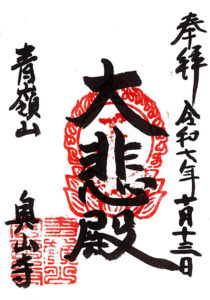 奉拝 令和六年十月十三日
大悲殿
青嶺山
奥山寺